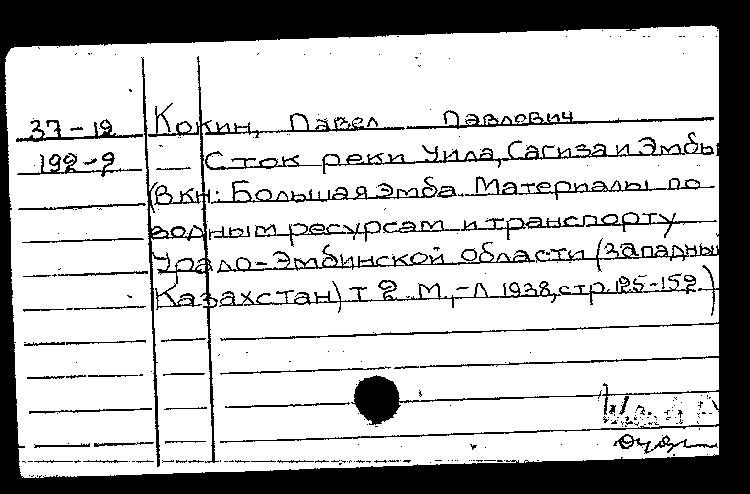 37-12 Кокин, Павел Павлович
192-2 Сток реки Уила, Сагиза и Эмбы
(В кн: Большая Эмба. Материалы по
водным ресурсам и транспорту
Урало-Эмбинской области (Западный
Казахстан) т 2. М,-Л 1938, стр. 125-152.)